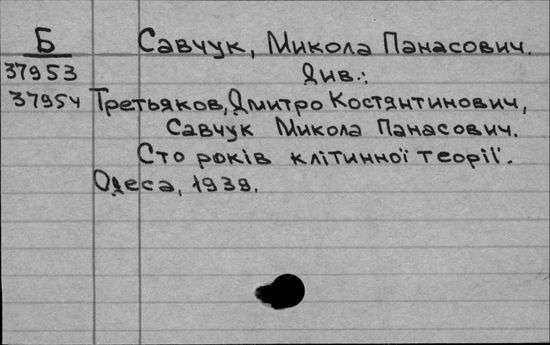 Б Савчук, Микола Панасович.
37953 Див.:
37954 Третьяков, Дмитро Костянтинович,
Савчук Микола Панасович.
Сто років клітинної теорії.
Одеса, 1939.